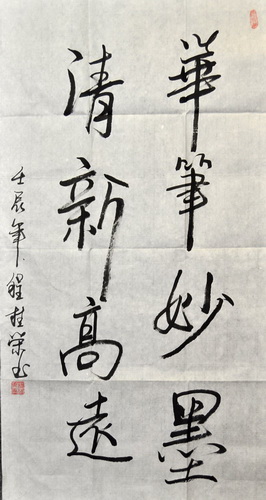 華筆妙墨
清新高遠
壬辰年